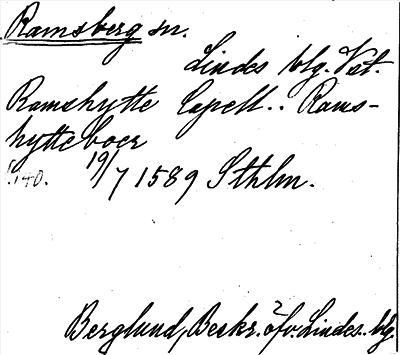 Ramsberg sn.
Lindes blg. Vst.
Ramshytte Capell.. Rams-
hytteboer
s.140. 19/7 1589 Sthlm.
Berglund, Beskr. öfv. Lindes blg